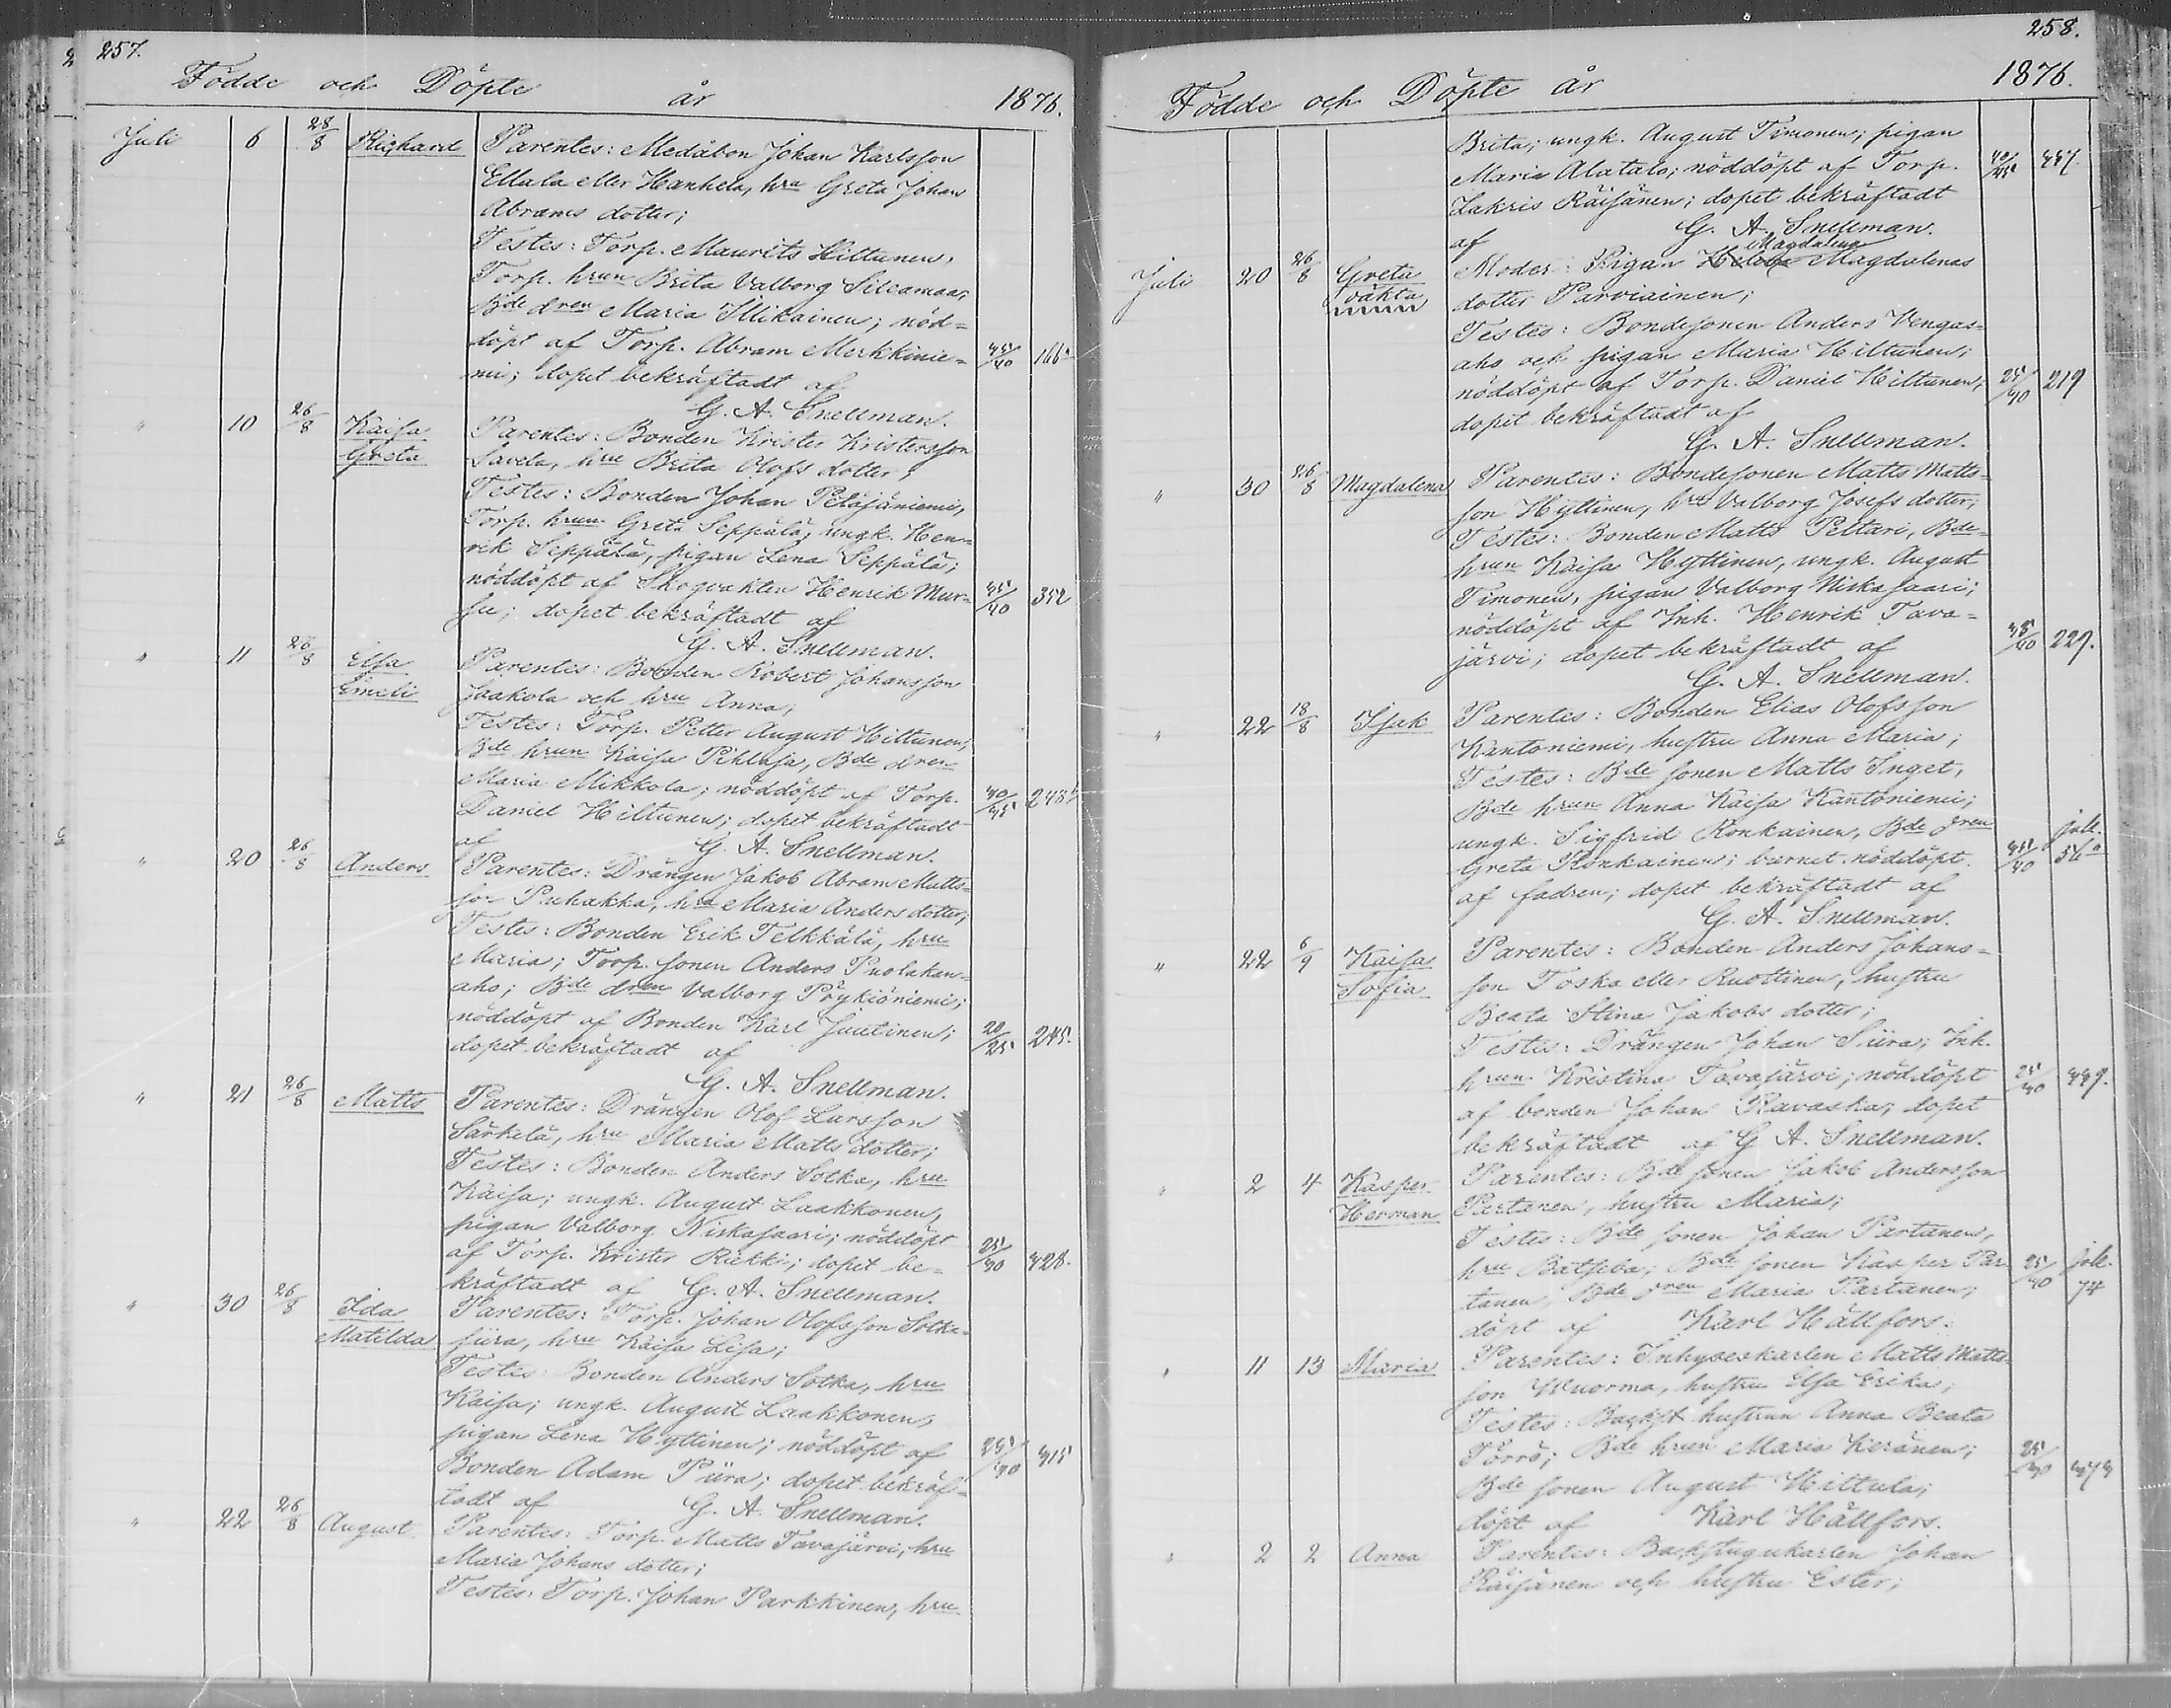 257.
Födde och Döpte år 1876.
Juli 6 28/8 Richard Parentes: Medåbon Johan Karlsson
Ellala eller Hanhela, hru Greta Johan
Abrams dotter;
Testes: Torp. Maurits Hiltunen,
Torp. hrun Brita Valborg
Bde dren Maria Illikainen; nöd=
döpt af Torp. Abram Merkkinie= 35/40 166
mi; dopet bekräftadt af
G. A. Snellman.
" 10 26/8 Kaisa Parentes: Bonden Krister Kristersson
Greta Savela, hru Brita Olofs dotter;
Testes: Bonden Johan Petäjäniemi,
Torp. hrun Greta Seppälä, ungk. Hen=
rik Seppälä, pigan Lena Seppälä;
nöddöpt af Skogvakten Henrik Mur= 35/40 352
su; dopet bekräftadt af
G. A. Snellman.
" 11 26/8 Elsa Parentes: Bonden Robert Johansson
Emeli Jaakola och hru Anna;
Testes: Torp. Petter August Hiltunen,
Bde hrun Kaisa Pihlaja, Bde dren
Maria Mikkola; nöddöpt af Torp. 40/45 248
Daniel Hiltunen; dopet bekräftadt
af G. A. Snellman.
" 20 26/8 Anders Parentes: Drängen Jakob Abram Matts=
son Puhakka, hru Maria Anders dotter;
Testes: Bonden Erik Telkkälä, hru
Maria; Torp. sonen Anders Puolakan=
aho; Bde dren Valborg Pöykiöniemi;
nöddöpt af Bonden Karl Juutinen; 20/25 245.
dopet bekräftadt af
G. A. Snellman.
" 21 26/8 Matts Parentes: Drängen Olof Larsson
Särkelä, hru Maria Matts dotter;
Testes: Bonden Anders Sotka, hru
Kaisa; ungk. August Laakkonen,
pigan Valborg Niskasaari; nöddöpt
af Torp. Krister Riekki; dopet be= 25/30 428.
kräftadt af G. A. Snellman.
" 30 26/8 Ida Parentes: Torp. Johan Olofsson Sotka=
Matilda siira, hru Kaisa Lisa;
Testes: Bonden Anders Sotka, hru
Kaisa; ungk. August Laakkonen,
pigan Lena Hyttinen; nöddöpt af
Bonden Adam Piira; dopet bekräf= 415
tadt af G. A. Snellman.
" 22 26/8 August Parentes: Torp. Matts Tavajärvi, hru
Maria Johans dotter;
Testes: Torp. Johan Parkkinen, hru
258.
Födde och Döpte år 1876.
Brita; ungk. August Timonen; pigan
Maria Alatalo; nöddöpt af Torp. 40/45 457.
Zakris Räisänen; dopet bekräftadt
af G. A. Snellman.
Magdalena
Juli 20 26/8 Greta Moder: Pigan Helena Magdalenas
oäkta dotter Parviainen;
Testes: Bondesonen Anders Vengas=
aho och pigan Maria Hiltunen;
nöddöpt af Torp. Daniel Hiltunen; 219
dopet bekräftadt af
G. A. Snellman.
" 30 26/8 Magdalena Parentes: Bondesonen Matts Matts=
son Hyttinen, hru Valborg Josefs dotter;
Testes: Bonden Matts Peltari, Bde
hrun Kaisa Hyttinen, ungk. August
Timonen, pigan Valborg Niskasaari;
nöddöpt af Inh. Henrik Tava=
järvi; dopet bekräftadt af 229.
G. A. Snellman.
" 22 18/8 Isak Parentes: Bonden Elias Olofsson
Kantoniemi, hustru Anna Maria;
Testes: Bde sonen Matts Inget,
Bde hrun Anna Kaisa Kantoniemi;
ungk. Sigfrid Ronkainen, Bde dren
Greta Ronkainen; barnet nöddöpt 35/40 56
af fadren; dopet bekräftadt af
G. A. Snellman.
" 22 6/9 Kaisa Parentes: Bonden Anders Johans=
Sofia son Toska eller Ruottinen, hustru
Beata Stina Jakobs dotter;
Testes: Drängen Johan Siira; Inh.
hrun Kristina Tavajärvi; nöddöpt
af bonden Johan Ravaska; dopet
bekräftadt af G. A. Snellman.
" 2 4 Kasper Parentes: Bde sonen Jakob Andersson
Herman Partanen, hustru Maria;
Testes: Bde sonen Johan Partanen,
hru Batseba; Bde sonen Kasper Par=
tanen, Bde dren Maria Partanen; 74
döpt af Karl Hällfors.
" 11 13 Maria Parentes: Inhyseskarlen Matts Matts=
son Wuorma, hustru Elsa Erika;
Testes: Backst. hustrun Anna Beata
Törrö; Bde hrun Maria Keränen;
Bde sonen August Hiltula;
döpt af Karl Hällfors.
" 2 2 Anna Parentes: Backstugukarlen Johan
Räisänen och hustru Ester;